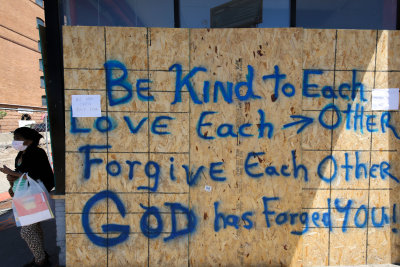 BE KIND to EacH
LOVE EacH → OTHER
Forgive EacH OtHer
GOD has Forged YOU!